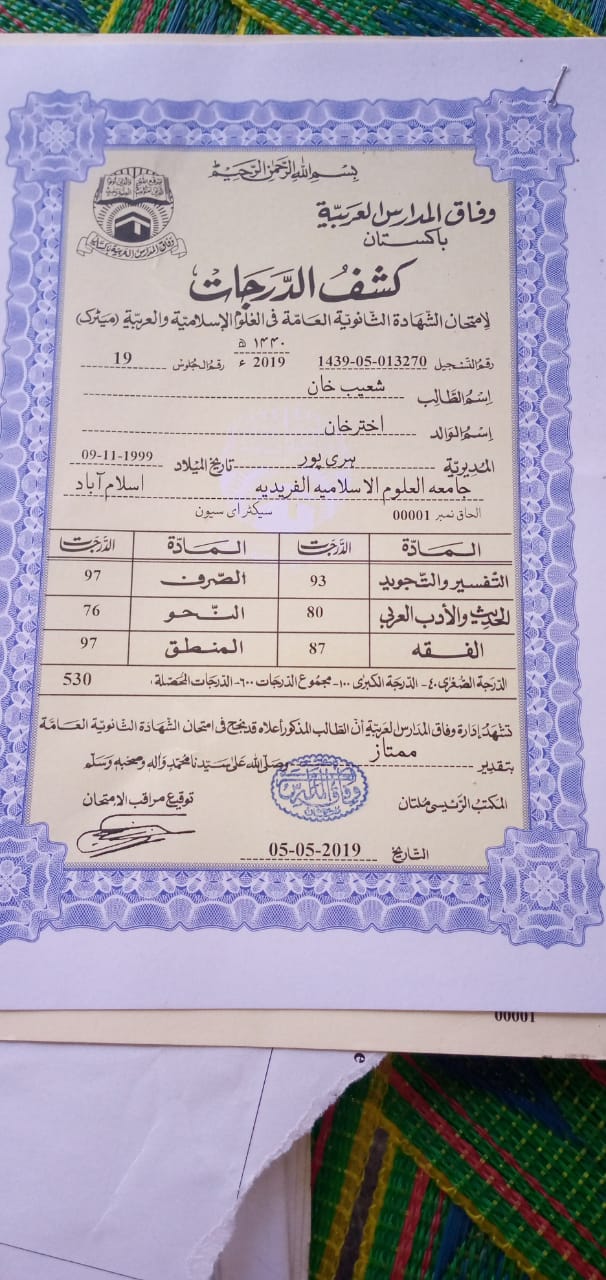 بِسْمِ اللهِ الرَّحْمٰنِ الرَّحِيْمِ
وفاق المدارس العربية
باكستان
كشفُ الدَّرَجَات
لِامتحان الشّهادة الثّانوية العامّة فى العُلوم الإسلاميّة والعربيّة (ميٹرک)
١٤٤٠ ھ
رقمُ التّسجيل 1439-05-013270 2019 ء رقمُ الجُلوس 19
اِسمُ الطّالِب شعیب خان
اِسمُ الوَالد اخترخان
المديريّة ہری پور تاريخ الميلاد 09-11-1999
جامعه العلوم الاسلاميه الفريديه اسلام آباد
الحاق نمبر 00001 سیکٹر ای سیون
المادّة الدّرجَات المادّة الدّرجَات
التّفسير والتّجويد 93 الصّرف 97
الحَديث والأدب العربي 80 النّحو 76
الفقه 87 المنطق 97
الدّرجة الصُّغرى ٤٠- الدّرجة الكبرىٰ ١٠٠- مجموع الدّرجات ٦٠٠- الدّرجات المُحصّلة: 530
تشهدُ إدارة وفاق المدارس العربيّة أنّ الطّالب المذكور أعلاه قد نجح فى امتحان الشّهادة الثّانوية العامّة
بتقدير ممتاز وصلّى الله على سيّدنا محمّد وآله وصحبه وسلّم
المكتب الرّئيسى مُلتان توقيع مراقب الامتحان
التّاريخ 05-05-2019
00001